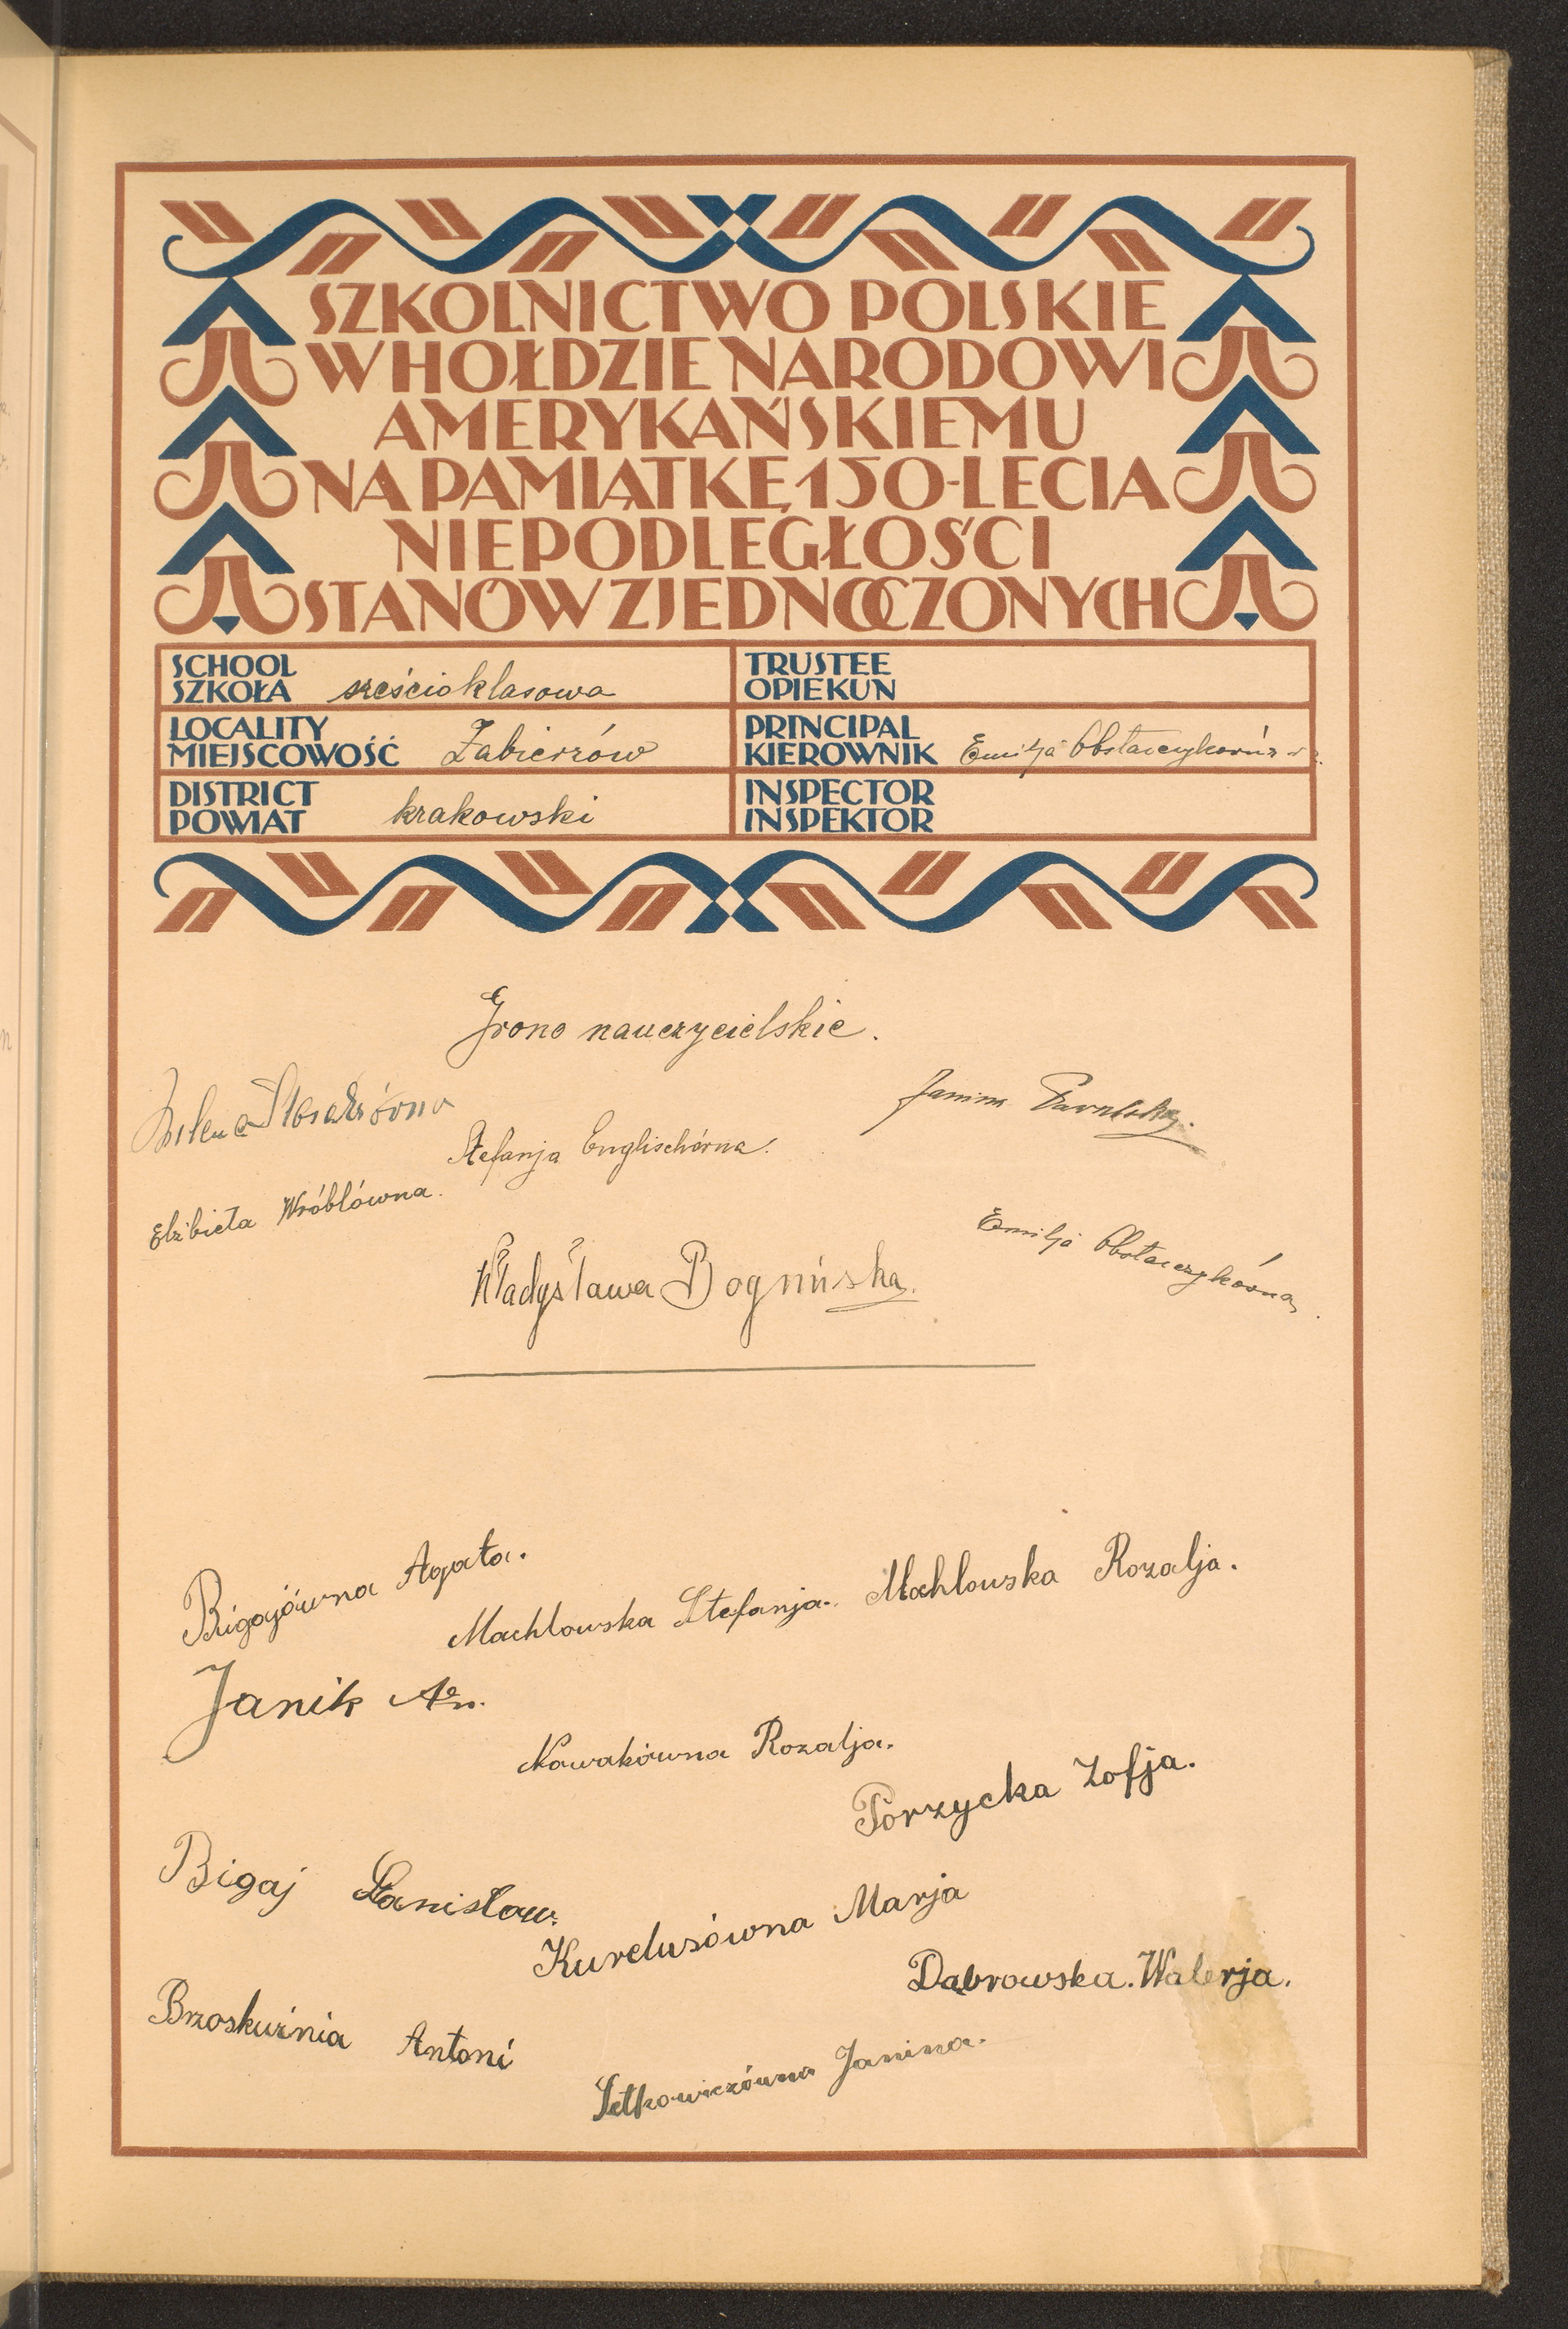 SZKOLNICTWO POLSKIE
W HOŁDZIE NARODOWI
AMERYKAŃSKIEMU
NA PAMIĄTKĘ 150-LECIA
NIEPODLEGŁOŚCI
STANÓW ZJEDNOCZONYCH
SCHOOL
SZKOŁA sześcioklasowa
TRUSTEE
OPIEKUN
LOCALITY
MIEJSCOWOŚĆ Zabierzów
PRINCIPAL
KIEROWNIK Emilja Obstarczykówna
DISTRICT
POWIAT krakowski
INSPECTOR
INSPEKTOR
Grono nauczycielskie.
Janina
Stefanja Englischówna.
Elżbieta Wróblówna.
Emilja Obstarczykówna.
Władysława Bogmińska.
Bigajówna Agata.
Machlowska Stefanja. Machlowska Rozalja.
Janik An.
Nowakówna Rozalja.
Porzycka Zofja.
Bigaj Stanisław.
Kurelusówna Marja
Dąbrowska. Walerja.
Brzoskwinia Antoni
Setkowiczówna Janina.